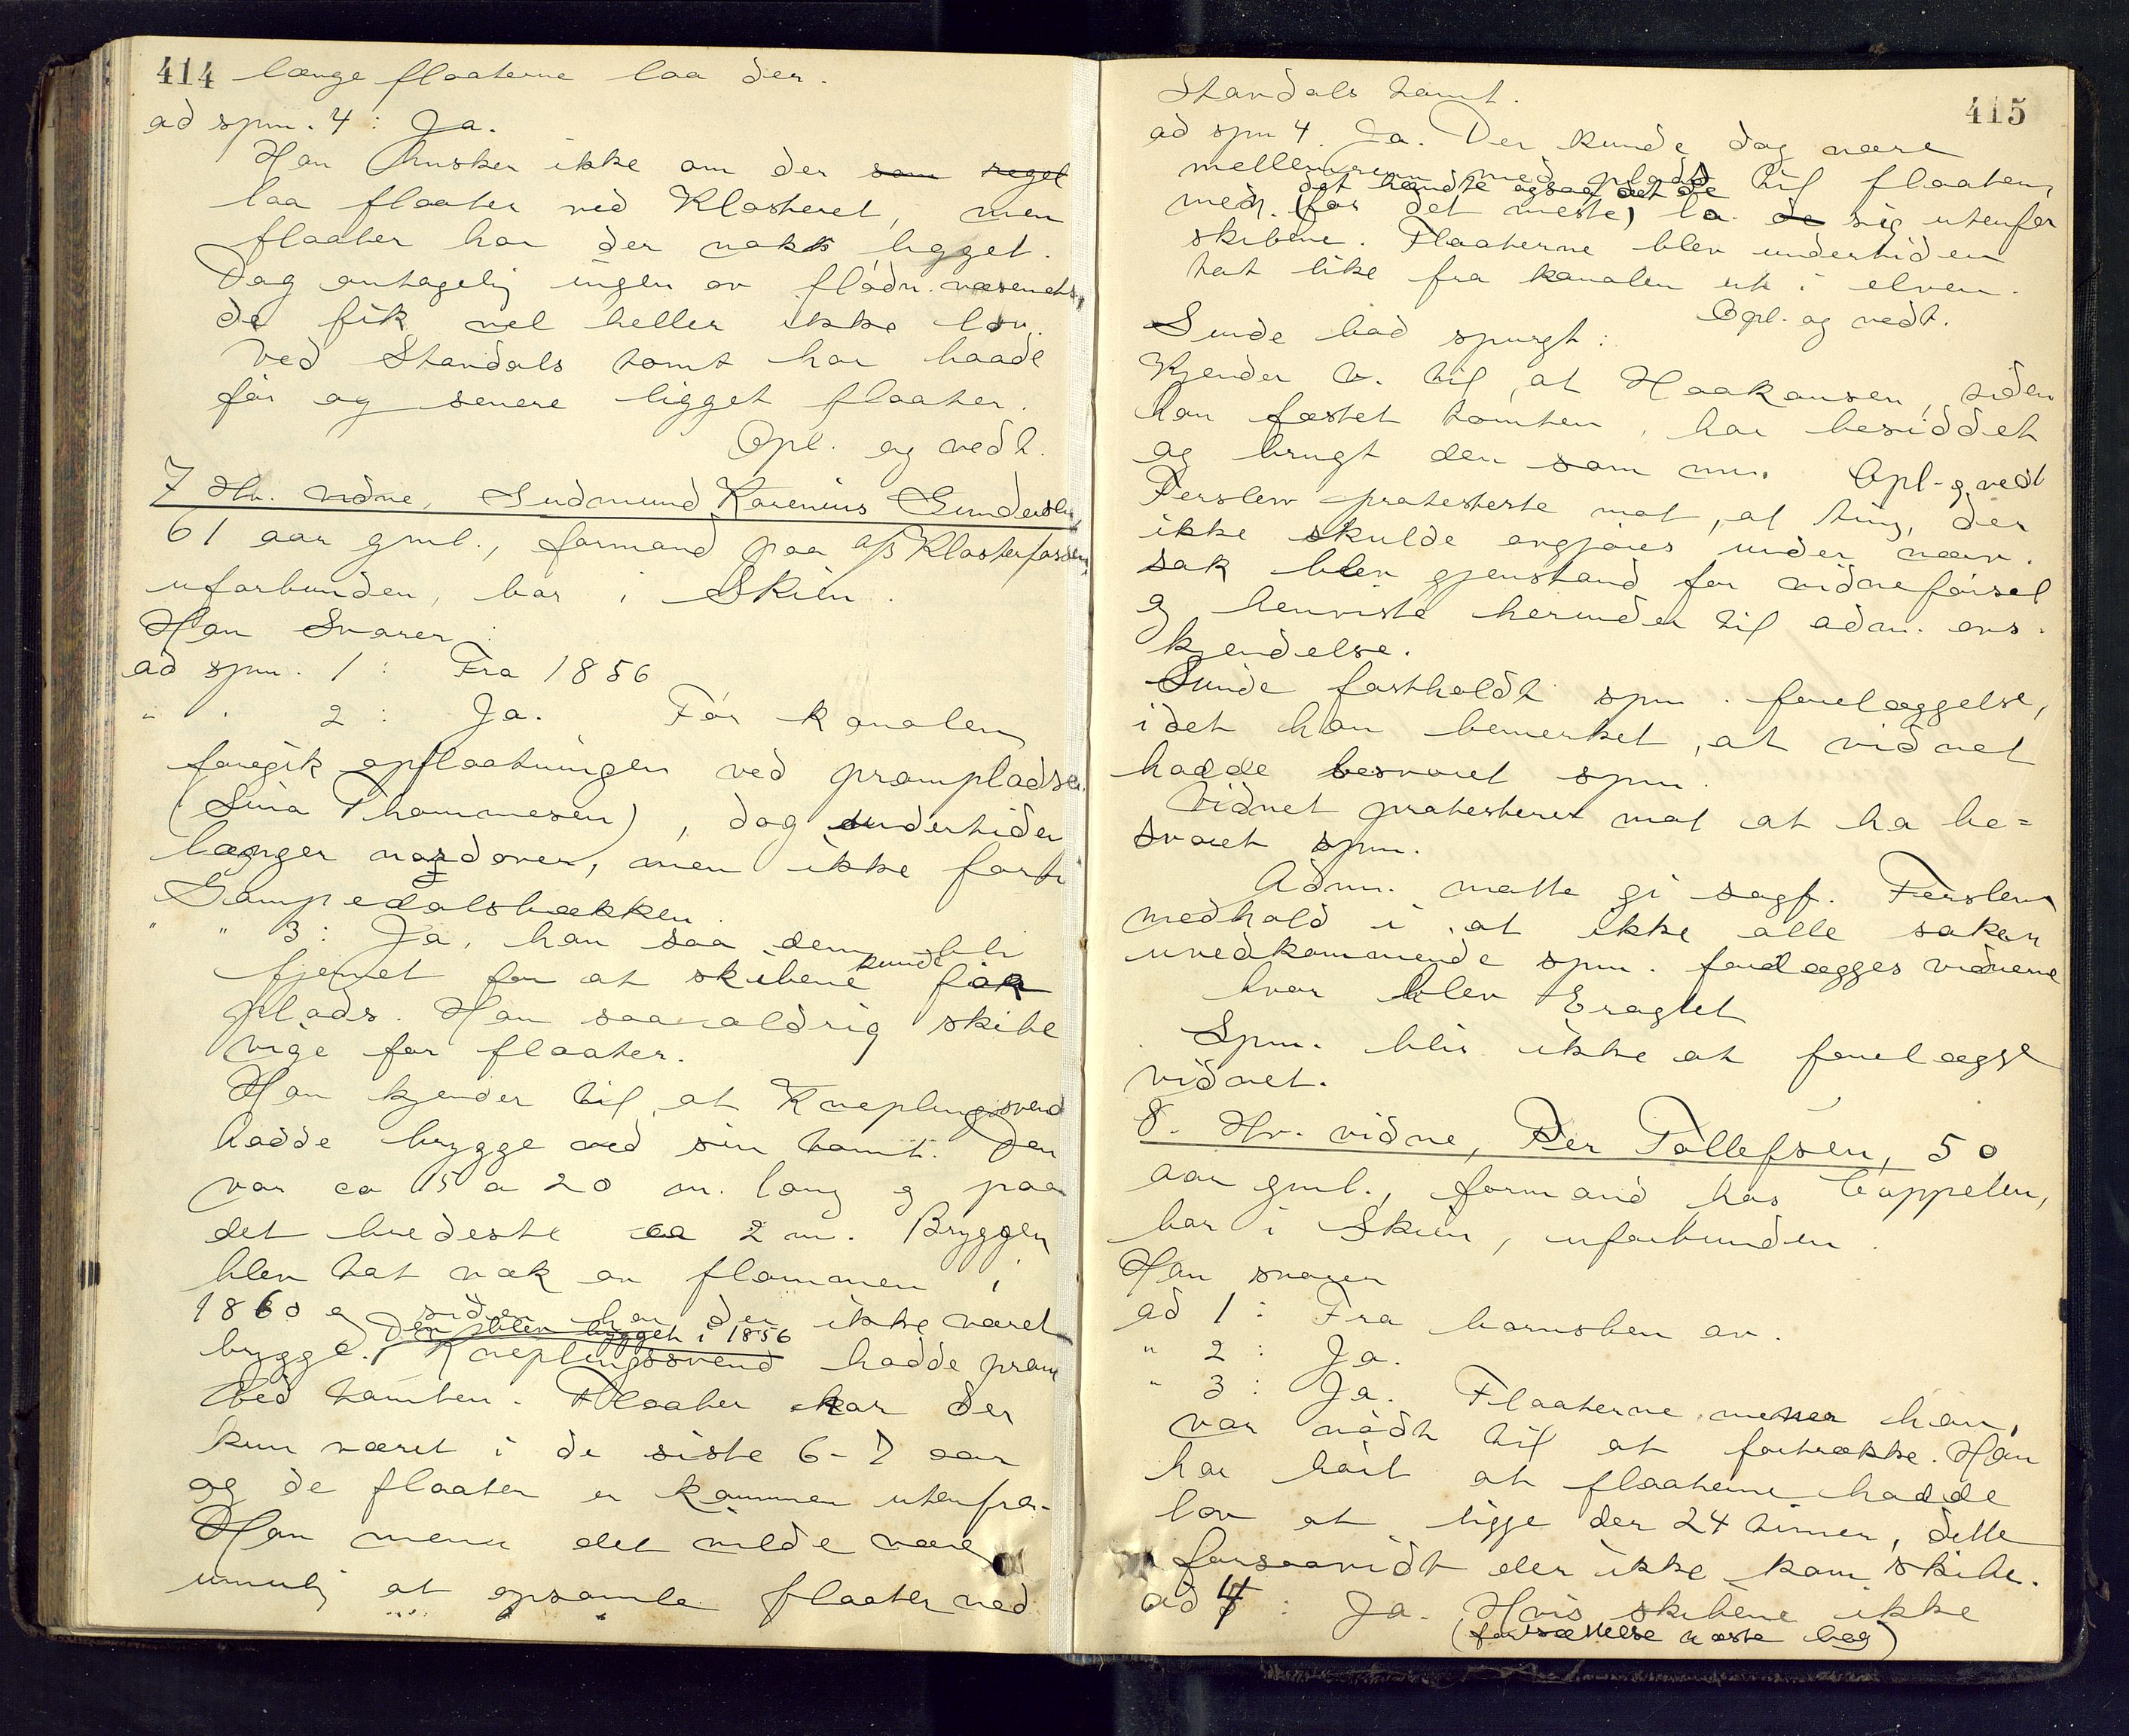 414 længe flaaterne laa der.
ad spm. 4 : Ja.
Han husker ikke om der som regel
laa flaater ved Klosteret, men
flaater har der nokk ligget.
Dog antagelig ingen av flødn. væsenets,
de fik vel heller ikke lov.
Ved Standals tomt har baade
før og senere ligget flaater.
Opl. og vedt.
7 Hv. vidne, Gudmund Karenius Gundersen,
61 aar gml., formand paa A/S Klosterfossen,
uforbunden, bor i Skien.
Han Svarer:
ad spm. 1 : Fra 1856
" " 2 : Ja. Før kanalen
foregik opflaatningen ved prampladsen
(Sina Thommesen), dog undertiden
længer nordover, men ikke forbi
Gampedalsbækken.
" " 3 : Ja, han saa dem bli
fjernet for at skibene kunde faa
plads. Han saa aldrig skibe
vige for flaater.
Han kjender til, at Kneplingsvend
hadde brygge ved sin tomt. Den
var ca 15 a 20 m. lang og paa
det bredeste ca 2 m. Bryggen
blev tat væk av flommen i
1860 og siden har der ikke været
Den blev bygget i 1856
brygge. Kneplingssvend hadde pram
ved tomten. Flaater har der
kun været i de siste 6-7 aar
og de flaater er kommen utenfra.
Han mener det vilde være
umulig at opsamle flaater ved
415
Standals tomt.
ad spm 4. Ja. Der kunde dog være
mellemrum med plads til flaaten,
det hændte ogsaa at de
men (for det meste) la de sig utenfor
skibene. Flaaterne blev undertiden
tat like fra kanalen ut i elven.
Opl. og vedt.
Sunde bad spurgt :
Kjender v. til, at Haakonsen, siden
han fæstet tomten, har besiddet
og brugt den som nu. Opl. og vedt
Ferslew protesterte mot, at ting, der
ikke skulde avgjøres under nærv.
sak blev gjenstand for vidneførsel
og henviste herunder til adm. avs.
kjendelse.
Sunde fastholdt spm. forelæggelse,
idet han bemerket, at vidnet
hadde besvaret spm.
Vidnet protesterer mot at ha be=
svaret spm.
Adm. matte gi sagf. Ferslew
medhold i, at ikke alle saken
uvedkommende spm. forelægges vidnerne
hvor blev Eragtet
Spm. blir ikke at forelægge
vidnet.
8. Hv. vidne, Per Tollefsen, 50
aar gml., formand hos Cappelen,
bor i Skien, uforbunden.
Han svarer
ad 1 : Fra barnsben av.
" 2 : Ja.
" 3 : Ja. Flaaterne, mener han,
var nødt til at fortrække. Han
har hørt at flaaterne hadde
lov at ligge der 24 timer, dette
forsaavidt der ikke kom skibe.
ad 4 : Ja. Hvis skibene ikke
(fortsættelse næste bog)